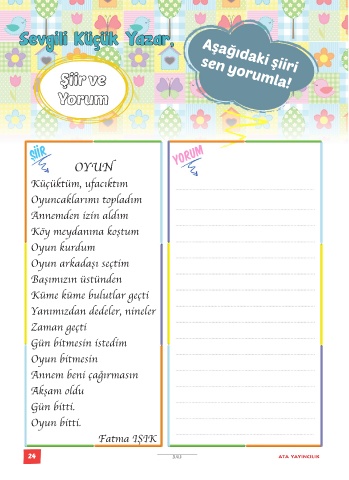 Sevgili Küçük Yazar,
Aşağıdaki şiiri
sen yorumla!
Şiir ve
Yorum
ŞİİR
YORUM
OYUN
Küçüktüm, ufacıktım
Oyuncaklarımı topladım
Annemden izin aldım
Köy meydanına koştum
Oyun kurdum
Oyun arkadaşı seçtim
Başımızın üstünden
Küme küme bulutlar geçti
Yanımızdan dedeler, nineler
Zaman geçti
Gün bitmesin istedim
Oyun bitmesin
Annem beni çağırmasın
Akşam oldu
Gün bitti.
Oyun bitti.
Fatma IŞIK
24
ATA YAYINCILIK